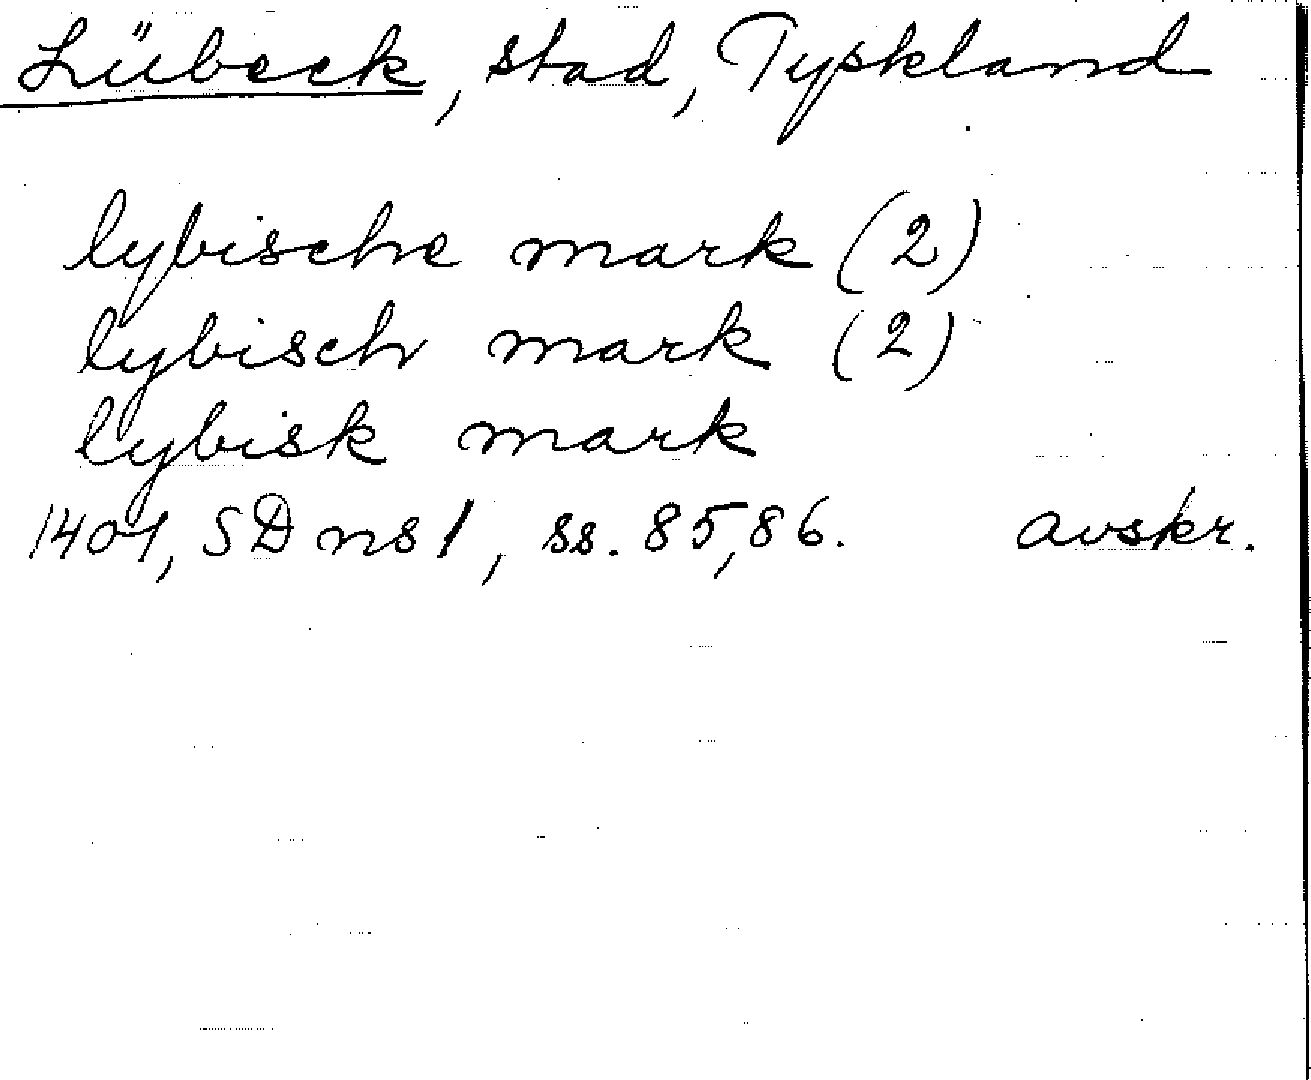 Lübeck, stad, Tyskland
lybische mark (2)
lybisch mark (2)
lybisk mark
1401, SD ns 1, ss. 85, 86. avskr.